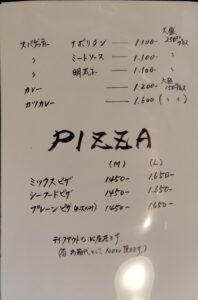 スパゲティ ナポリタン —— 1.100- 大盛250円プラス
〃 ミートソース —— 1.100- 〃
〃 明太子 —— 1.100- 〃
カレー —— 1.200- 大盛150円プラス
カツカレー —— 1.600 (〃)
PIZZA
(M) (L)
ミックスピザ 1450- 1.650-
シーフードピザ 1450- 1.650-
プレーンピザ 1450- 1650-
テイクアウトも出来ます。